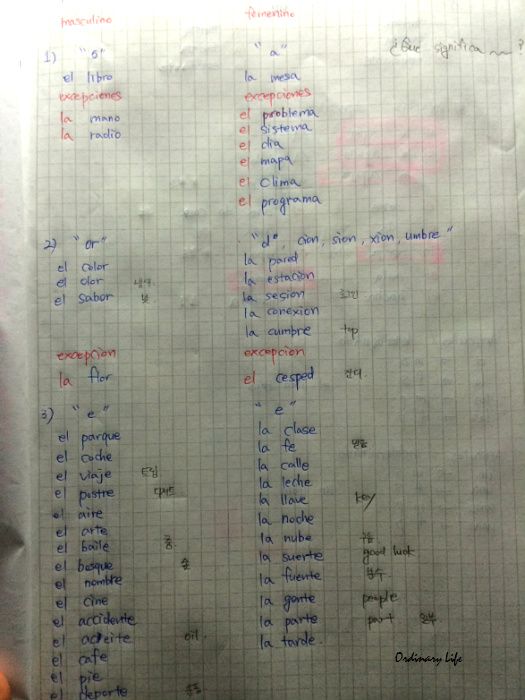 masculino
femenino
¿Que significa ?
1) "o"
el libro
excepciones
la mano
la radio
"a"
la mesa
excepciones
el problema
el sistema
el dia
el mapa
el clima
el programa
2) "or"
el color
el olor 냄새
el sabor 맛
excepcion
la flor
"d", cion, sion, xion, umbre"
la pared
la estacion
la sesion
la conexion
la cumbre top
excepcion
el cesped 잔디
3) "e"
el parque
el coche
el viaje
el postre 디저트
el aire
el arte
el baile 춤
el bosque 숲
el nombre
el cine
el accidente
el aceite oil.
el cafe
el pie
el deporte 운동
"e"
la clase
la fe 믿음
la calle
la leche
la llave key
la noche
la nube 구름
la suerte good luck
la fuente 분수
la gente people
la parte part 일부
la tarde.
Ordinary Life